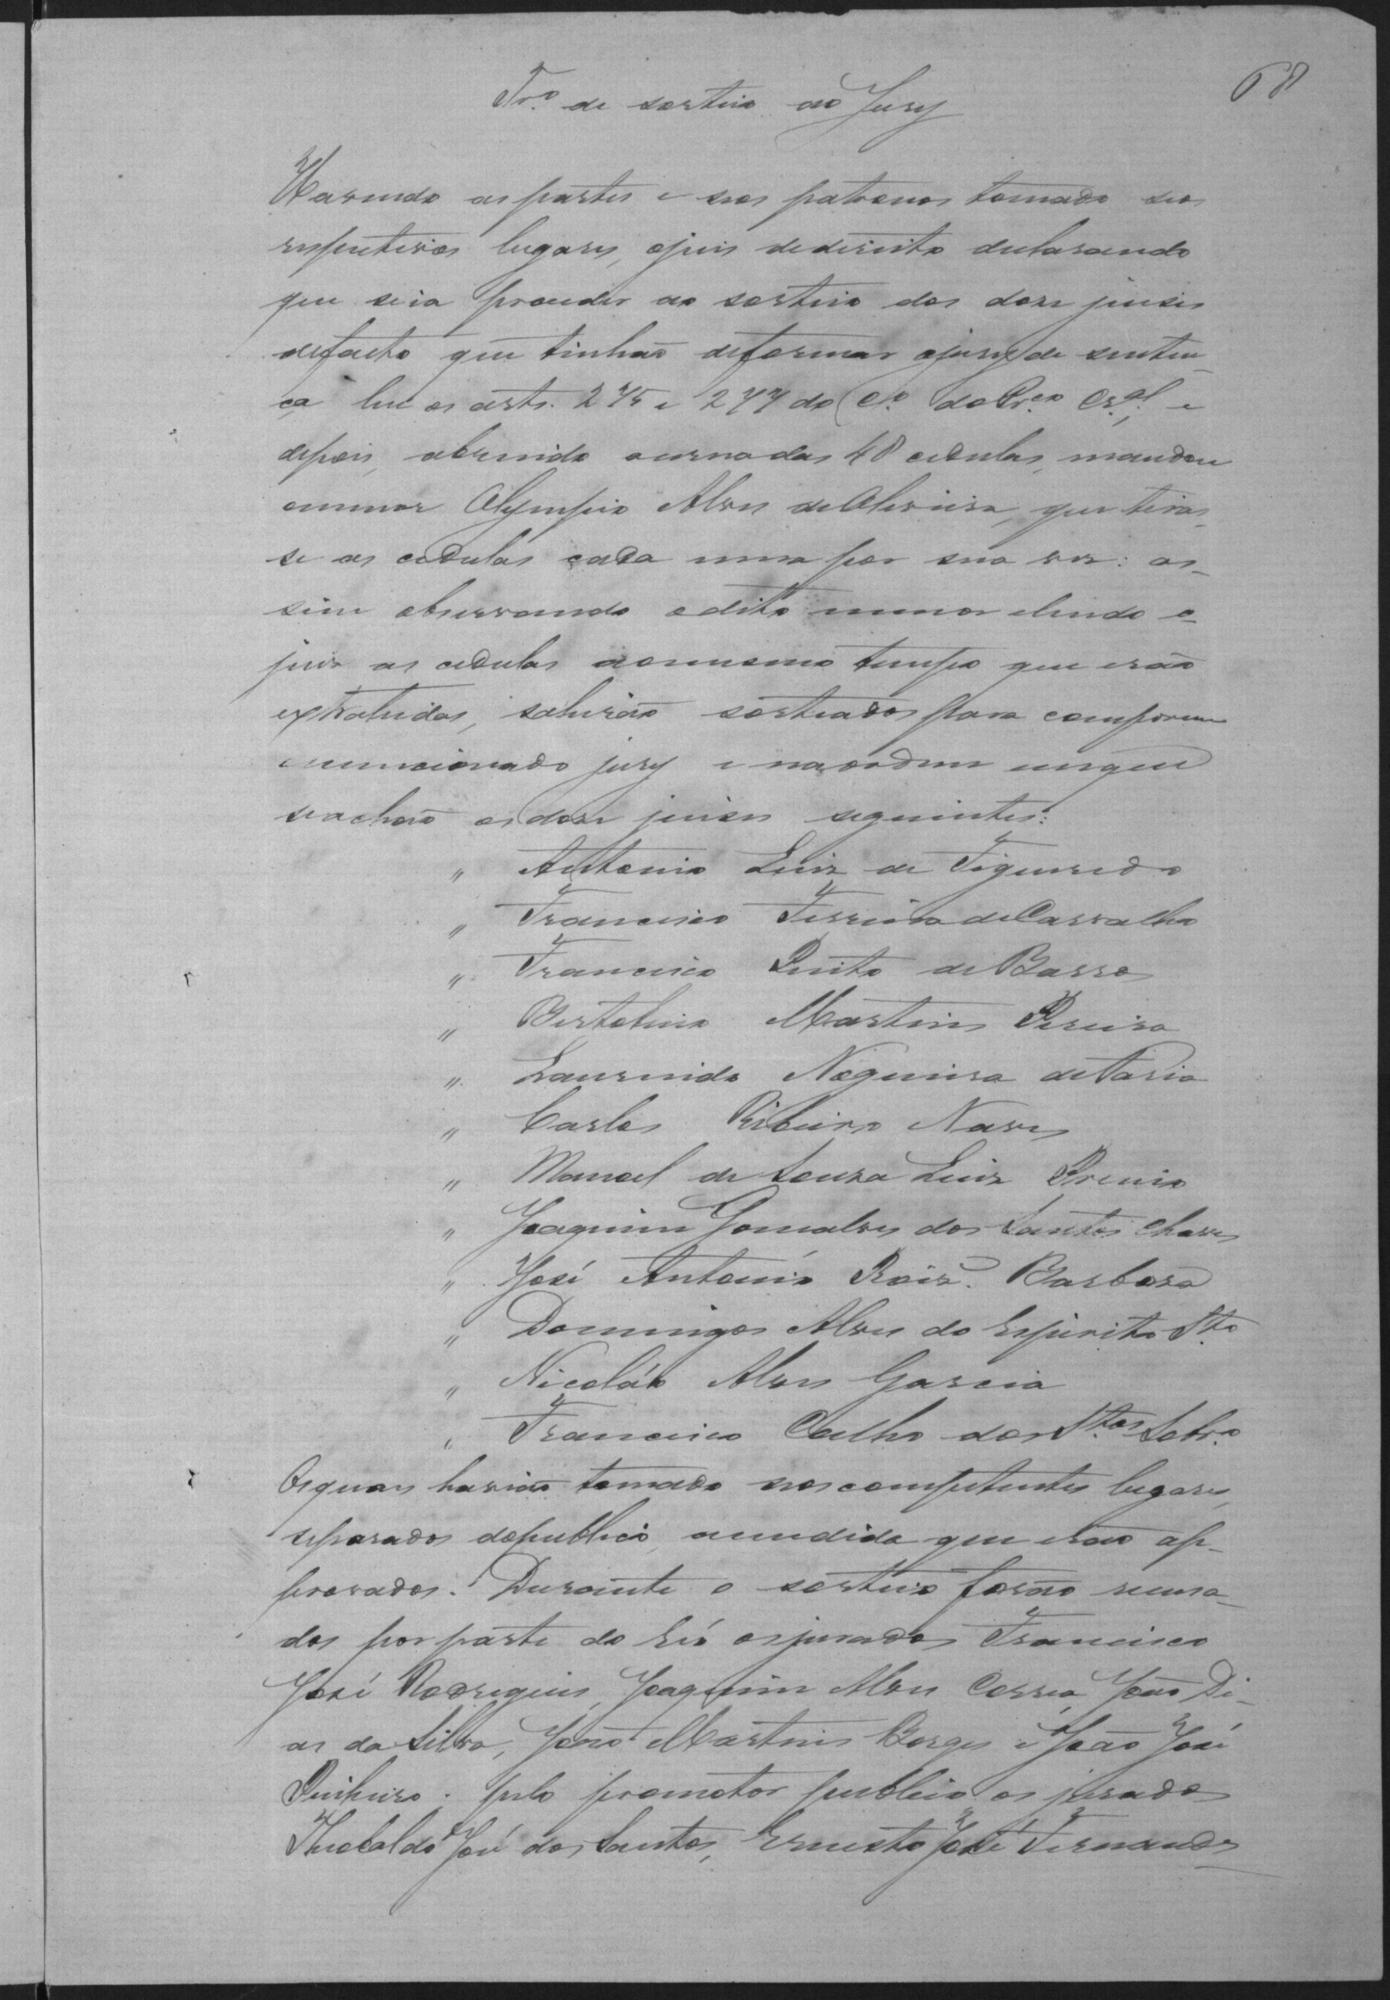 68
Trº de sorteio do Jury
Havendo as partes e seos patronos tomado seos
respectivos lugares, o juis de direito declarando
que se ia proceder ao sorteio dos doze juises
de facto que tinhão de formar o jury de senten-
ça leu os arts. 275 e 277 do Cº do Prcº Crªl, e
depois, abrindo a urna das 48 cedulas, mandou
o menor Olympio Alves de Oliveira, que tiras-
se as cedulas cada uma por sua vez: as-
sim observando o dito menor e lendo o
juis as cedulas ao mesmo tempo que erão
extrahidas, sahirão sorteados para comporem
o mencionado jury e na ordem em que
se achão os doze juises seguintes:
" Antonio Luiz de Figueredo
" Francisco Ferreira de Carvalho
" Francisco Pinto de Barros
" Bertolino Martins Pereira
" Laurindo Nogueira de Faria
" Carlos Ribeiro Naves
" Manoel de Souza Luiz Primio
" Joaquim Gonsalves dos Santos Chaves
" José Antonio Roiz. Barbosa
" Domingos Alves do Espirito Stº
" Nicoláo Alves Garcia
" Francisco Coelho dos Stos Sobrº
Os quaes havião tomado seos competentes lugares,
separados do publico, a medida que erão ap-
provados. Durante o sorteio forão recusa-
dos por parte do réo os jurados Francisco
José Rodrigues, Joaquim Alves Corrêa, João Di-
as da Silva, João Martins Borges e João José
Pinheiro. pelo promotor publico os jurados
Theobaldo José dos Santos, Ernesto José Fernandes